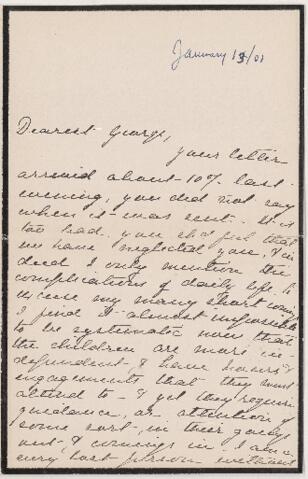 January 13/01
Dearest George,
your letter
arrived about 10 last
evening, you did not say
when it was sent. It is
too bad you sh'd feel that
we have neglected you, & in
deed I only mention the
complications of daily life to
excuse my many short comings
I find it almost impossible
to be systematic now that
the children are more in-
dependent & have hours &
engagements that they must
attend to - & yet they require
guidance, or attention of
some sort, in their goings
out & comings in. I am a
very lost person without